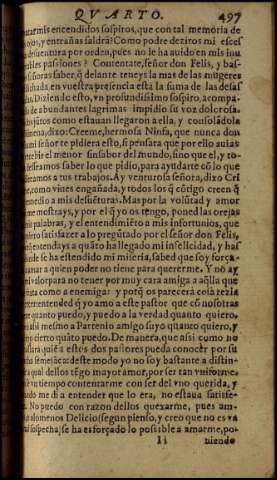 QVARTO. 497
mis encendidos sospiros, que con tal memoria de
ojos, y entrañas saldrà? Como podre deziros mi esces
desuentura por orden, pues no le ha auido en mis inu
bles passiones? Contentate, señor don Felis, y bas-
señoras saber, q̃ delante teneys la mas de las mugeres
dichada, en vuestra presencia está la suma de las desas
Diziendo esto, vn profundissimo sospiro, acompa-
de abundantes lagrimas impidio su voz dolorosa.
juntos como estauan llegaron a ella, y consolãdola
mena, dixo: Creeme, hermosa Ninfa, que nunca don
ni señor te pidiera esto, si pensara que por ello auias
recebir el menor sinsabor del mundo, sino que el, y to-
desseamos saber lo que pido, para ayudarte cõ lo que
eramos a tus trabajos. Ay venturosa señora, dixo Cri
, como viues engañada, y todos los q̃ cõtigo creen q̃
remedio a mis desuẽturas. Mas por la volũtad y amor
me mostrays, y por el q̃ yo os tengo, poned las orejas
mis palabras, y el entendimiẽto a mis infortunios, que
quiero satisfazer a lo pregũtado por el señor don Felis,
entendays a quãto ha llegado mi infelicidad, y has
donde se ha estendido mi miseria, sabed que soy força-
amar a quien poder no tiene para quererme. Y no ay
mi valor para no tener por muy cara amiga a aõlla que
como a enemiga: y porq̃ os parecera cosa rezia
entended q̃ yo amo a este pastor que cõ nosotras
quanto puedo, y puedo a la verdad quanto quiero,
assi mesmo a Partenio amigo suyo quanto quiero, y
cierto quãto puedo. De manera, que assi como no
stara quiẽ a estos dos pastores pueda conocer por su
semejãça: deste modo yo no soy bastante a distin-
qual dellos tẽgo mayor amor, por ser tan vniforme.
vn tiempo contentarme con ser del vno querida, y
me di a entender que lo era, no estaua satisfe-
No puedo con razon dellos quexarme, pues am-
alomenos Delicio (segun pienso, y creo que no es va
sospecha, se ha esforçado lo possible a amarme, po-
Ii niendo